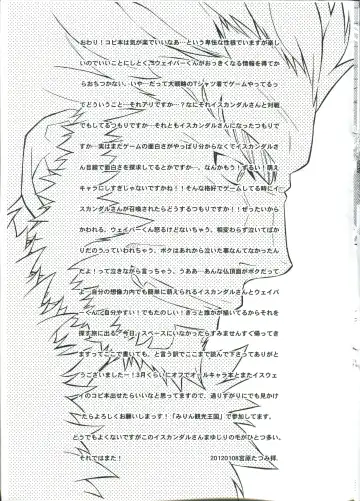 おわり！コピ本は気が楽でいいなあ…という卑怯な性根でいますが楽し
いのでいいことにしとく。ウェイバーくんがおっきくなる情報を得てか
らおちつかない。いや…だって大戦略のTシャツ着てゲームやってるっ
てどういうこと…それアリですか…？なにそれイスカンダルさんと対戦
でもしてるつもりですか…それともイスカンダルさんになったつもりで
すか…実はまだゲームの面白さがやっぱり分からなくてイスカンダルさ
ん目線で面白さを探求してるとかですか…、なんもう！ずるい！萌え
キャラにしすぎじゃないですかね！！そんな格好でゲームしてる時にイ
スカンダルさんが召喚されたらどうするつもりですか！！ぜったいから
かわれる、ウェイバーくん怒るけどないちゃう、相変わらず泣いてばか
りだのうっていわれちゃう、ボクはあれから泣いた事なんてなかったん
だよ！って泣きながら言っちゃう、うああ…あんな仏頂面がボクだって
よ…自分の想像力内でも簡単に萌えられるイスカンダルさんとウェイバ
ーくんご自分やすい！でもたのしい！きっと誰かが描いてるからそれを
探す旅に出る。今日、スペースにいなかったらすみませんすぐ帰ってき
ますってここで書いても。と言う訳でここまで読んで下さってありがと
うございましたー！3月くらいにオフでオールキャラ本とまたイスウェ
イのコピ本出せたらいいなと思ってますので、通りすがりにでも見かけ
たらよろしくお願いしまっす！「みりん観光王国」で参加してます。
どうでもよくないですがこのイスカンダルさんまゆじりの毛がひとつ多い。
それではまた！ 20120108宮原たつみ拝.